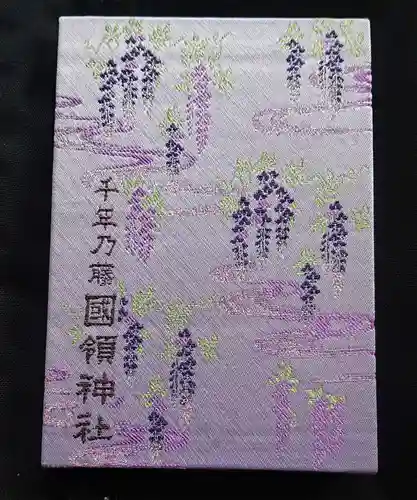 千年乃藤
國領神社